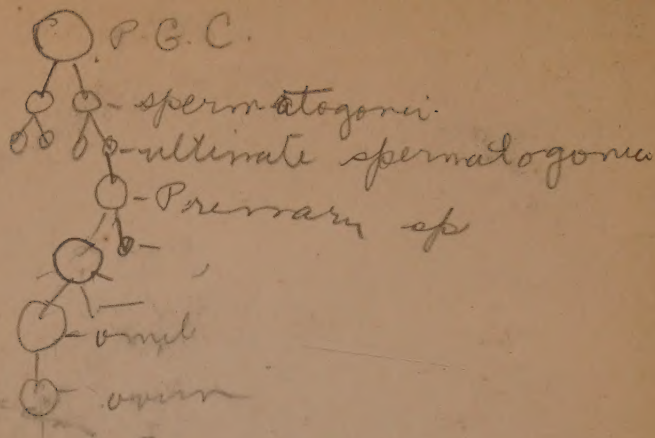 P. G. C.
- spermatogoni.
- ultimate spermatogonia
- Primary sp
- ovum